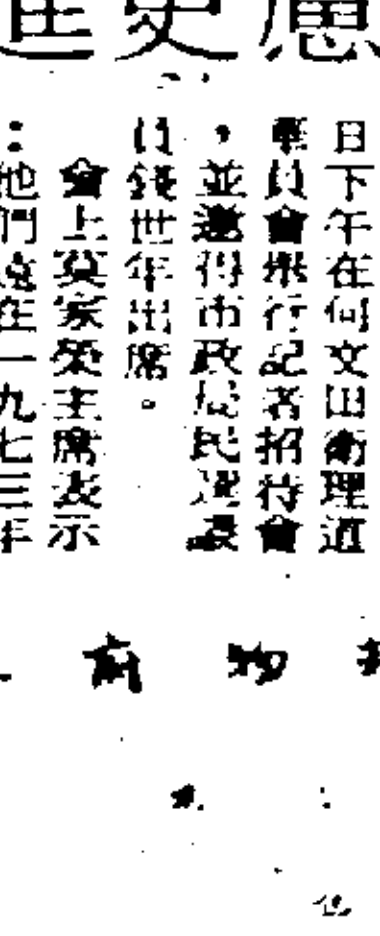 應更進
日下午在何文田衛理道
舉員會舉行記者招待會
，並邀得市政局民選議
員錢世年出席。
會上莫家榮主席表示
：他們遠在一九七三年
前物